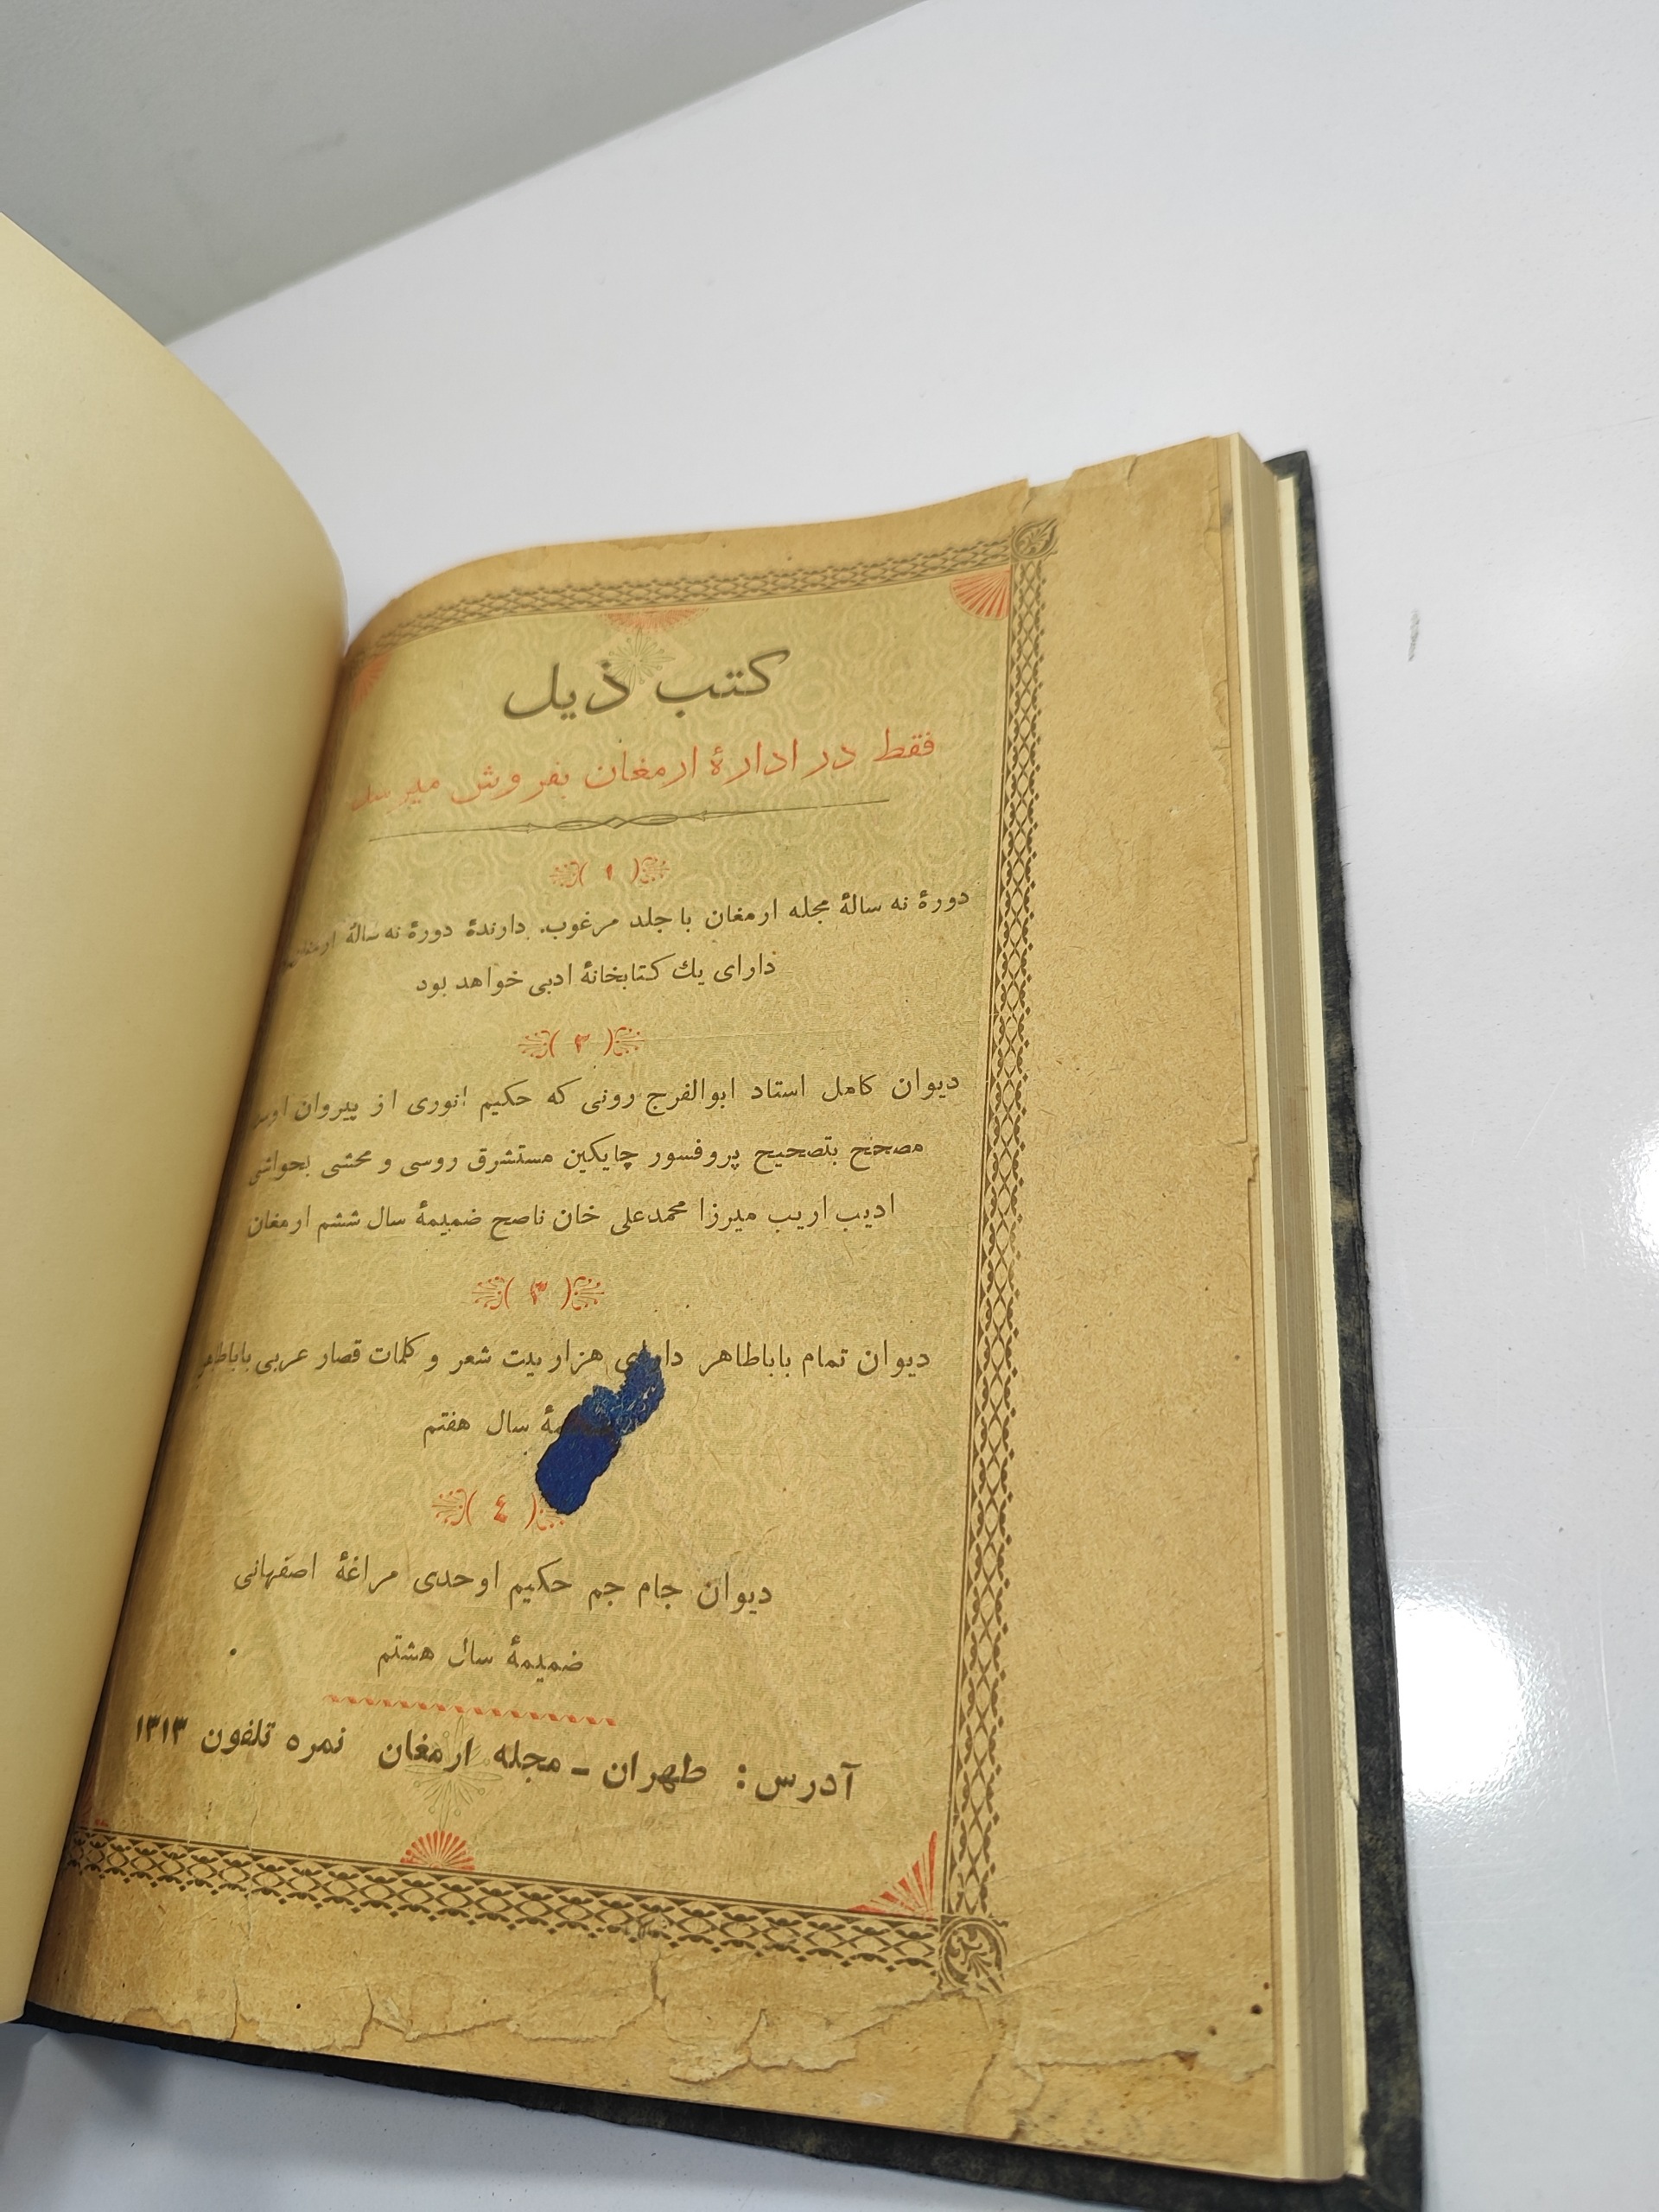 کتب ذیل
فقط در ادارهٔ ارمغان بفروش میرسد
( ۱ )
دورهٔ نه سالهٔ مجله ارمغان با جلد مرغوب. دارندهٔ دورهٔ نه سالهٔ ارمغان
دارای یك کتابخانهٔ ادبی خواهد بود
( ۲ )
دیوان کامل استاد ابوالفرج رونی که حکیم انوری از پیروان اوست
مصحح بتصحیح پروفسور چایکین مستشرق روسی و محشی بحواشی
ادیب اریب میرزا محمدعلی خان ناصح ضمیمهٔ سال ششم ارمغان
( ۳ )
دیوان تمام باباطاهر دارای هزار بیت شعر و کلمات قصار عربی باباطاهر
سال هفتم
( ٤ )
دیوان جام جم حکیم اوحدی مراغهٔ اصفهانی
ضمیمهٔ سال هشتم
آدرس: طهران ـ مجله ارمغان نمره تلفون ۱۳۱۳